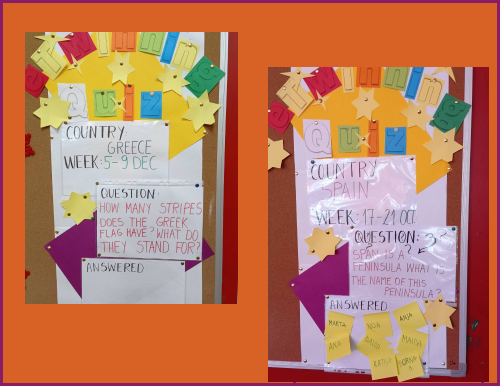 eTwinning
Quiz
COUNTRY:
GREECE
WEEK: 5-9 DEC
QUESTION:
HOW MANY STRIPES
DOES THE GREEK
FLAG HAVE? WHAT DO
THEY STAND FOR?
ANSWERED
eTwinning
Quiz
COUNTRY
SPAIN
WEEK: 17-21 OCT
QUESTION: 3
SPAIN IS A?
PENINSULA WHAT IS
THE NAME OF THIS
PENINSULA?
ANSWERED
MARTA
ANJA
ANA
DAVID
KATJA